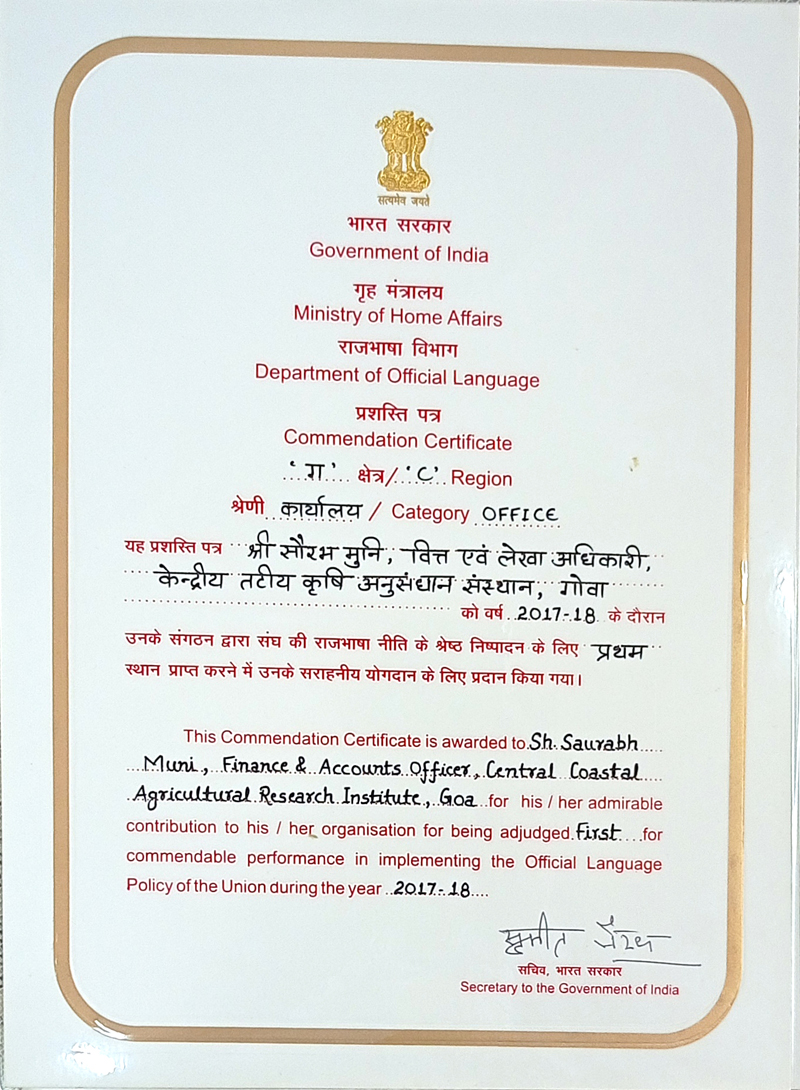 सत्यमेव जयते
भारत सरकार
Government of India
गृह मंत्रालय
Ministry of Home Affairs
राजभाषा विभाग
Department of Official Language
प्रशस्ति पत्र
Commendation Certificate
'ग' क्षेत्र/ 'C' Region
श्रेणी कार्यालय / Category OFFICE
यह प्रशस्ति पत्र श्री सौरभ मुनि, वित्त एवं लेखा अधिकारी,
केन्द्रीय तटीय कृषि अनुसंधान संस्थान, गोवा
को वर्ष 2017-18 के दौरान
उनके संगठन द्वारा संघ की राजभाषा नीति के श्रेष्ठ निष्पादन के लिए प्रथम
स्थान प्राप्त करने में उनके सराहनीय योगदान के लिए प्रदान किया गया।
This Commendation Certificate is awarded to Sh. Saurabh
Muni, Finance & Accounts Officer, Central Coastal
Agricultural Research Institute, Goa for his / her admirable
contribution to his / her organisation for being adjudged First for
commendable performance in implementing the Official Language
Policy of the Union during the year 2017-18
सचिव, भारत सरकार
Secretary to the Government of India